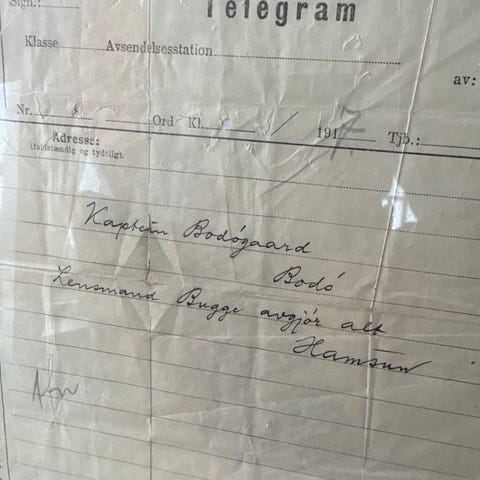 Sign.:
Telegram
Klasse Avsendelsesstation
av:
Nr. Ord Kl. / 1917 Tjb.:
Adresse:
(fuldstændig og tydelig).
Kaptein Bodógaard
Bodó
Lensmand Bugge avgjór alt
Hamsun